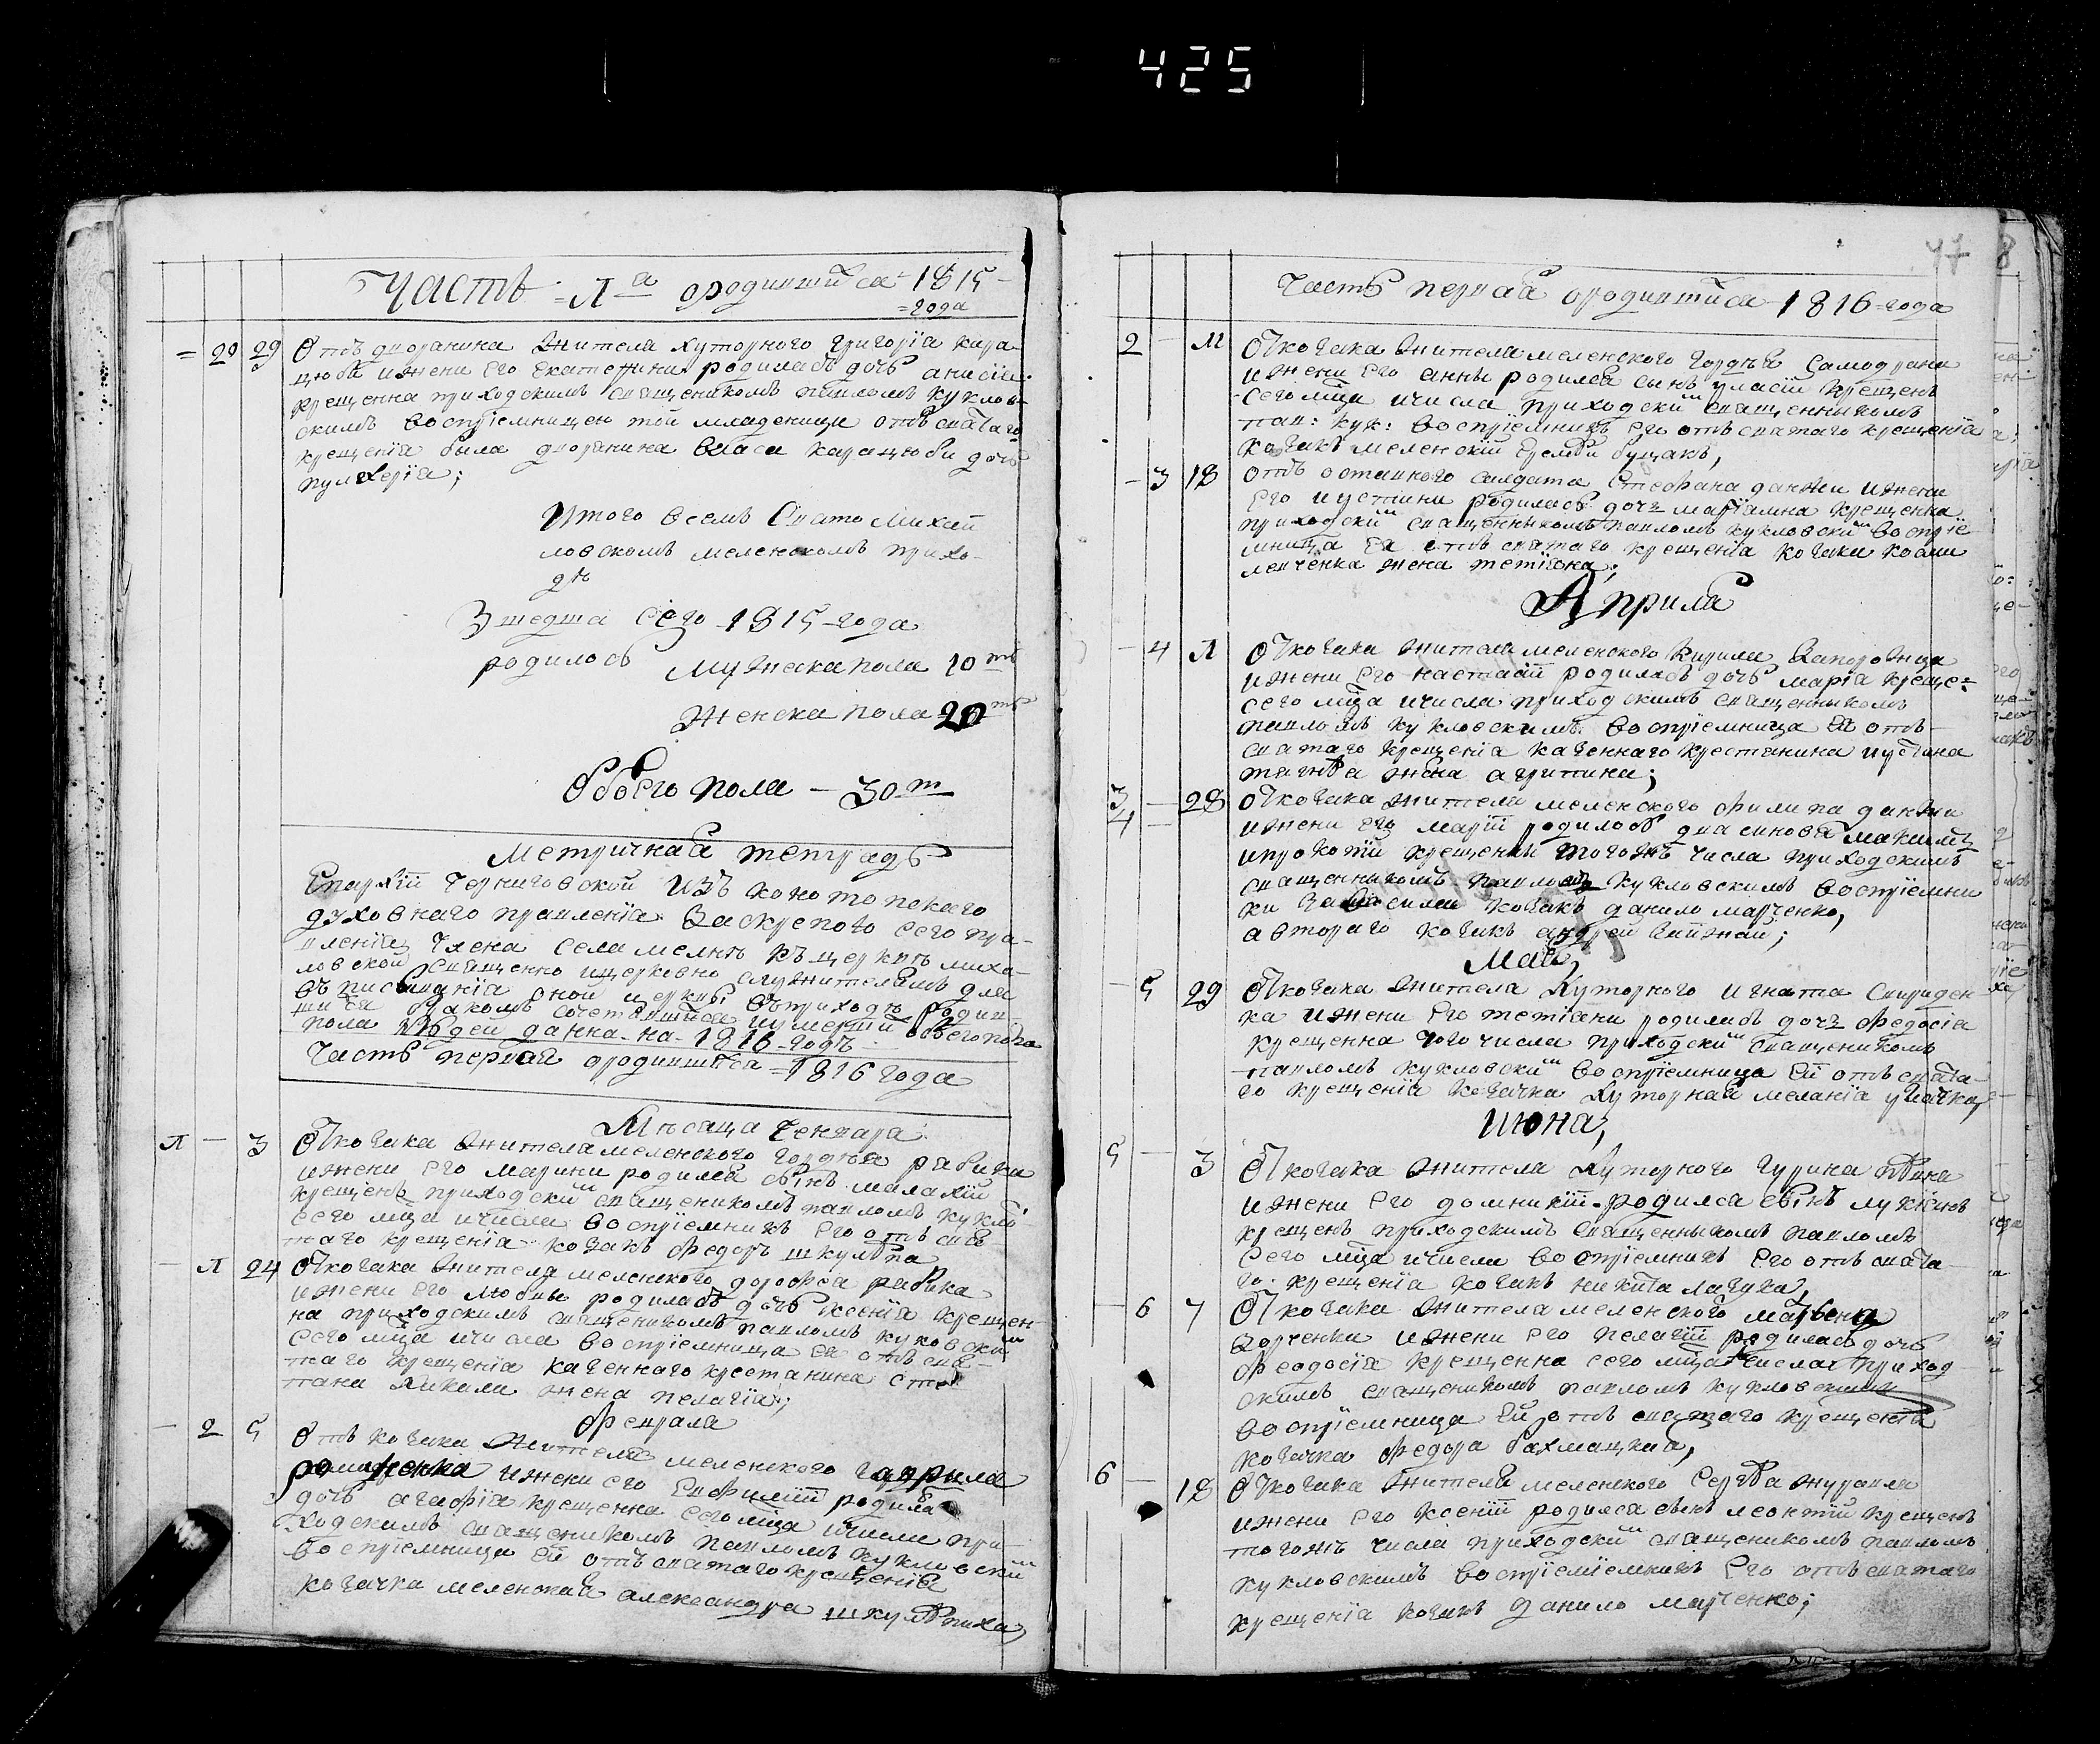 425
Часть - 1а о родившийся 1815
= года
= 20 29 Отъ дворянина жителя хуторного Григорія кара-
цюбы и жены его екатерины родилась дочь анисія
крещенна приходскимъ священикомъ павломъ куклов-
скимъ воспріемницею той младеницы отъ святаго
крещенія была дворянина власа карацюбы дочь
пулхерія;
Итого всемъ Свято Михай
ловскомъ меленскомъ прихо-
дѣ
Зшедша сего 1815 года
родилось мужеска пола 10ть
Женска пола 20ть
Обоего пола - 30т
Метричная тетрадь
Епархіи Черниговской изъ конотопскаго
духовнаго правленія Заскрепою сего пра-
вленія члена села мелнѣ къ церквѣ миха-
ловской священно и церковно служителямъ для
въписыванія оной церкви въ приходѣ родив-
шийся бракомъ сочетавшийся и умерший обоего
пола людей данна на 1816 годъ
Часть первая о родившийся = 1816 года
Мѣсяца Генваря
1 - 3 От козака жителя меленского гордѣя рабика
и жены его марины родился сынъ малахій
крещенъ приходским священикомъ павломъ кукло
сего мца и числа воспріемникъ его отъ свя-
таго крещенія козакъ федоръ шкулѣпа
- 1 24 От козака жителя меленского дорофея рабика
и жены его любвы родилась дочь ксенія крещен-
на приходскимъ священикомъ павломъ куковским
сего мца и числа воспріемница ея отъ свя-
таго крещенія казенного крестянина сте
пана хикали жена пелагія;
Февраля
- 2 5 Отъ козака жителя меленского гаврила
романенка и жены его Евфиміи родила
дочь агафія крещенна сего мца и числа при-
ходскимъ священикомъ павломъ кукловским
воспріемница ей отъ святаго крещенія
козачка меленская александра шкулѣпиха,
47 8
Часть первая о родившийся 1816 года
2 - 11 От козака жителя меленского гордѣя Самодрана
и жены его анны родился сынъ власій крещенъ
сего мца и числа приходским священныкомъ
пав: кук: воспріемникъ его отъ святаго крещенія
козакъ меленскій еремѣй буцакъ,
- 3 18 отъ отставного салдата Стефана данжи и жены
его иустины родилась дочь маріамна крещенна
приходским священныкомъ павломъ кукловским воспріе-
мница ея отъ святаго крещенія козака космы
левченка жена тетіяна;
Априля
- 4 1 От козака жителя меленского кирилы Запорожца
и жены его настасіи родилась дочь марія креще=
сего мца и числа приходскимъ священныкомъ
павломъ кукловскимъ воспріемница ей отъ
святаго крещенія казенного крестянина иустина
жена агрипина;
3 - 28 От козака жителя меленского филипа данжи
4 - и жены его маріи родилось два сыновя максимъ
и прокопій крещенны тогожъ числа приходскимъ
священныкомъ павломъ кукловскимъ воспріемни
ки За максима козакъ данило марченко,
а втораго козакъ андрей ;
Мая,
- 5 29 От козака жителя хуторного игната Спириден-
ка и жены его тетіяны родилась дочь федосія
крещенна того числа приходским священикомъ
павломъ кукловским воспріемница ей отъ свята-
го крещенія козачка хуторная меланія
Июня,
5 - 3 От козака жителя хуторного гурина
и жены его домникіи родился сынъ лукіянъ
крещенъ приходскимъ священныкомъ павломъ
сего мца и числа воспріемникъ его отъ свята-
го крещенія козакъ никита лазука,
- 6 7 От козака жителя меленского матвея
и жены его пелагіи родилась дочь
феодосія крещенна сего мца и числа приход
скимъ священикомъ павломъ кукловскимъ
воспріемница ей отъ святаго крещенія
козачка федора бахмацкая,
6 - 12 От козака жителя меленского Сергѣя журавля
и жены его ксеніи родился сынъ леонтій крещенъ
тогожъ числа приходским священикомъ павломъ
кукловскимъ воспріеміемникъ его отъ святаго
крещенія козакъ данило марченко;